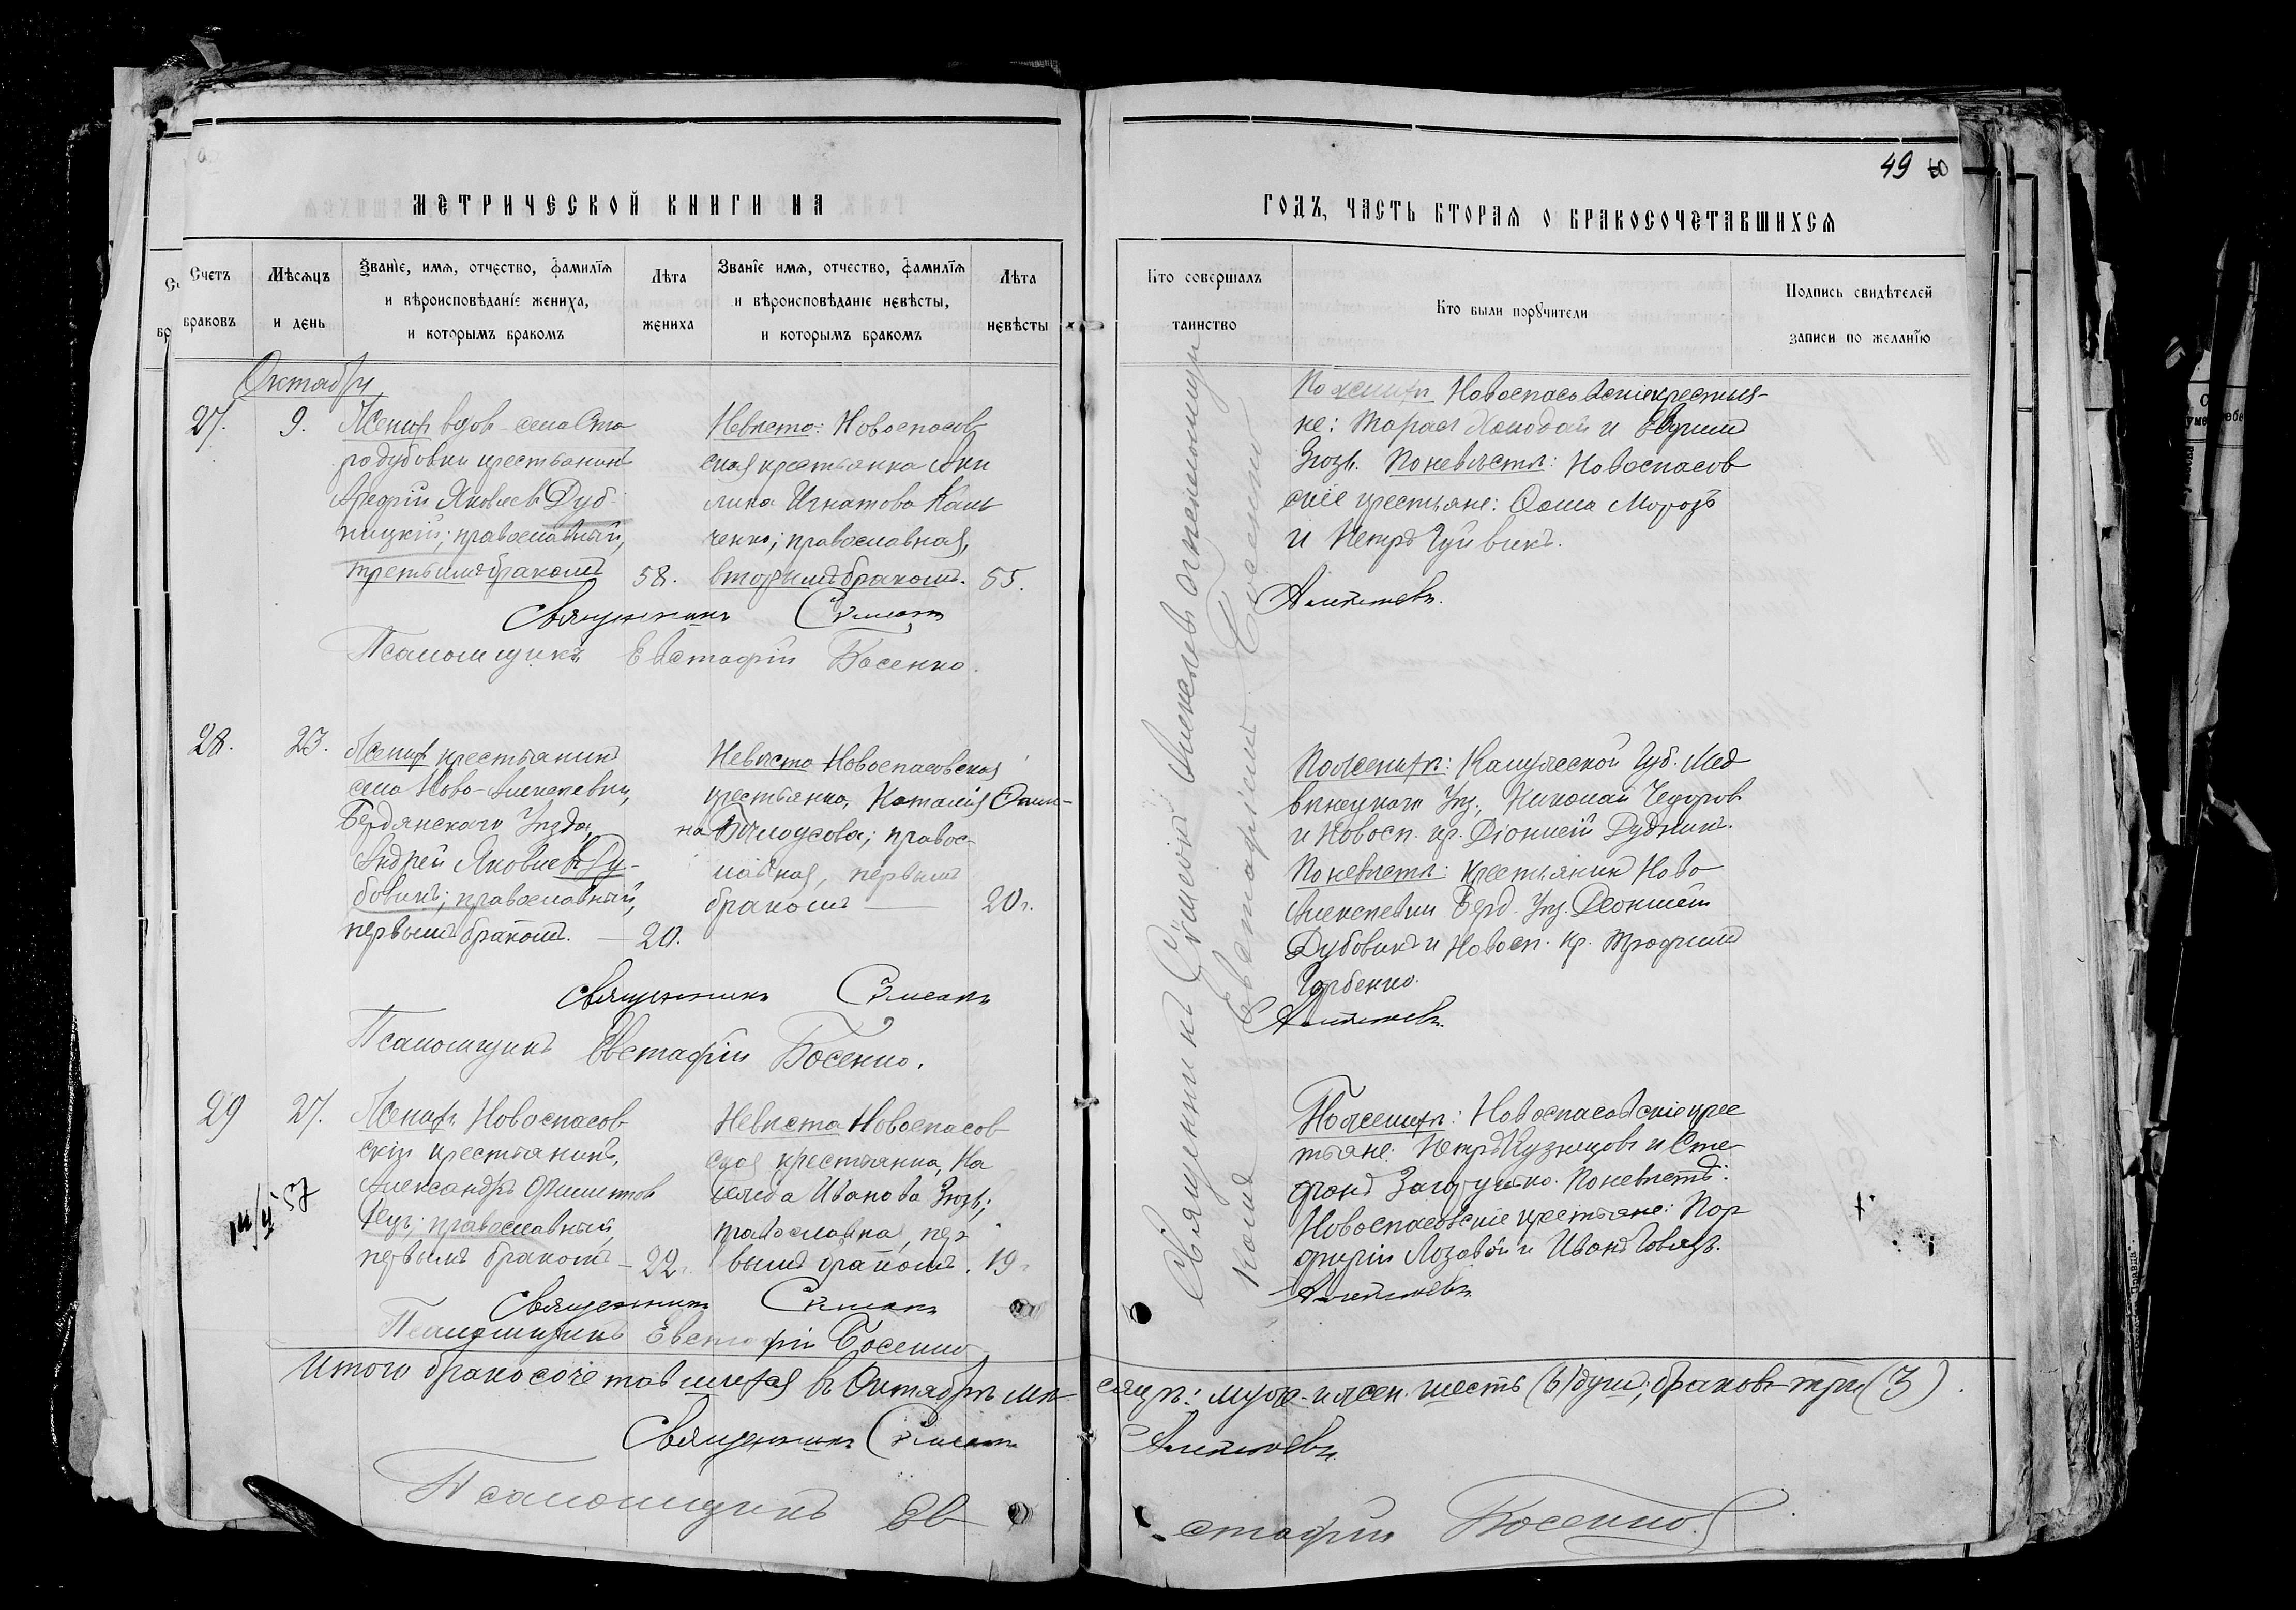 49
МЕТРИЧЕСКОЙ КНИГИ НА
ГОДЪ, ЧАСТЬ ВТОРАЯ О БРАКОСОЧЕТАВШИХСЯ
Счетъ браковъ
Мѣсяцъ и день
Званіе, имя, отчество, фамилія и вѣроисповѣданіе жениха, и которымъ бракомъ
Лѣта жениха
Званіе имя, отчество, фамилія и вѣроисповѣданіе невѣсты, и которымъ бракомъ
Лѣта невѣсты
Кто совершалъ таинство
Кто были поручители
Подпись свидѣтелей записи по желанію
Октябрь
27. 9.
Женихъ вдов. села Ста
родубовки крестьянинъ
Яковлевъ Дуб
ницкій; православный,
третьимъ бракомъ 58.
Невѣста: Новоспасов
ская крестьянка Аки
лина Игнатова Каль
ченко; православная,
вторымъ бракомъ. 55.
По женихѣ Новоспасовскіе крестья-
не: Тарас и Евфимъ
Зюзь. По невѣстѣ: Новоспасов
скіе крестьяне: Фома Морозъ
и Петръ Чуйвикъ.
Священникъ Сѵмеонъ
Алексѣевъ.
Псаломщикъ Евстафій Босенко.
28. 23.
Женихъ крестьянинъ
села Ново-Алексѣевки,
Бердянскаго Уѣзда,
Андрей Яковлевъ Ду-
бовикъ; православный,
первымъ бракомъ. — 20.
Невѣста Новоспасовская
крестьянка, Наталія Фоми-
на Бѣлоусова; правос-
лавная, первымъ
бракомъ — 20.
По женихѣ: Калужской Губ. Мед
Уѣз., Николай Ѳедоров
и Новосп. кр. Діонисій Дудникъ.
По невѣстѣ: крестьянин Ново
Алексѣевки Берд. Уѣз. Діонисій
Дубовикъ и Новосп. кр. Трофимъ
Горбенко.
Священникъ Сѵмеонъ
Алексѣевъ.
Псаломщикъ Евстафій Босенко.
29 27.
Женихъ Новоспасов
скій крестьянинъ,
Александръ Филиппов
православный,
первымъ бракомъ — 22.
Невѣста Новоспасов
ская крестьянка, На
Иванова Зюзь;
православна, пер
вымъ бракомъ. 19.
По женихѣ: Новоспасовскіе крес
тьяне: Петръ Кузнецовъ и Сте-
фанъ Загорулько. По невѣстѣ:
Новоспасовскіе крестьяне: Пор
фирій Лозовой и Иванъ
Священникъ Сѵмеонъ
Алексѣевъ
Псаломщикъ Евстафій Босенко
Священникъ Сѵмеонъ Алексѣевъ съ псаломщи
комъ Евстафіемъ Босенко
Итого бракосочетавшихся въ Октябрѣ мѣ
сяцѣ: муж. и жен. шесть (6) душъ; браковъ три (3).
Священникъ Сѵмеонъ
Алексѣевъ.
Псаломщикъ Ев
стафій Босенко.